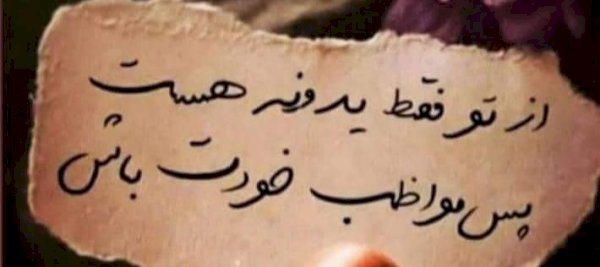 از تو فقط یدونه هست
پس مواظب خودت باش